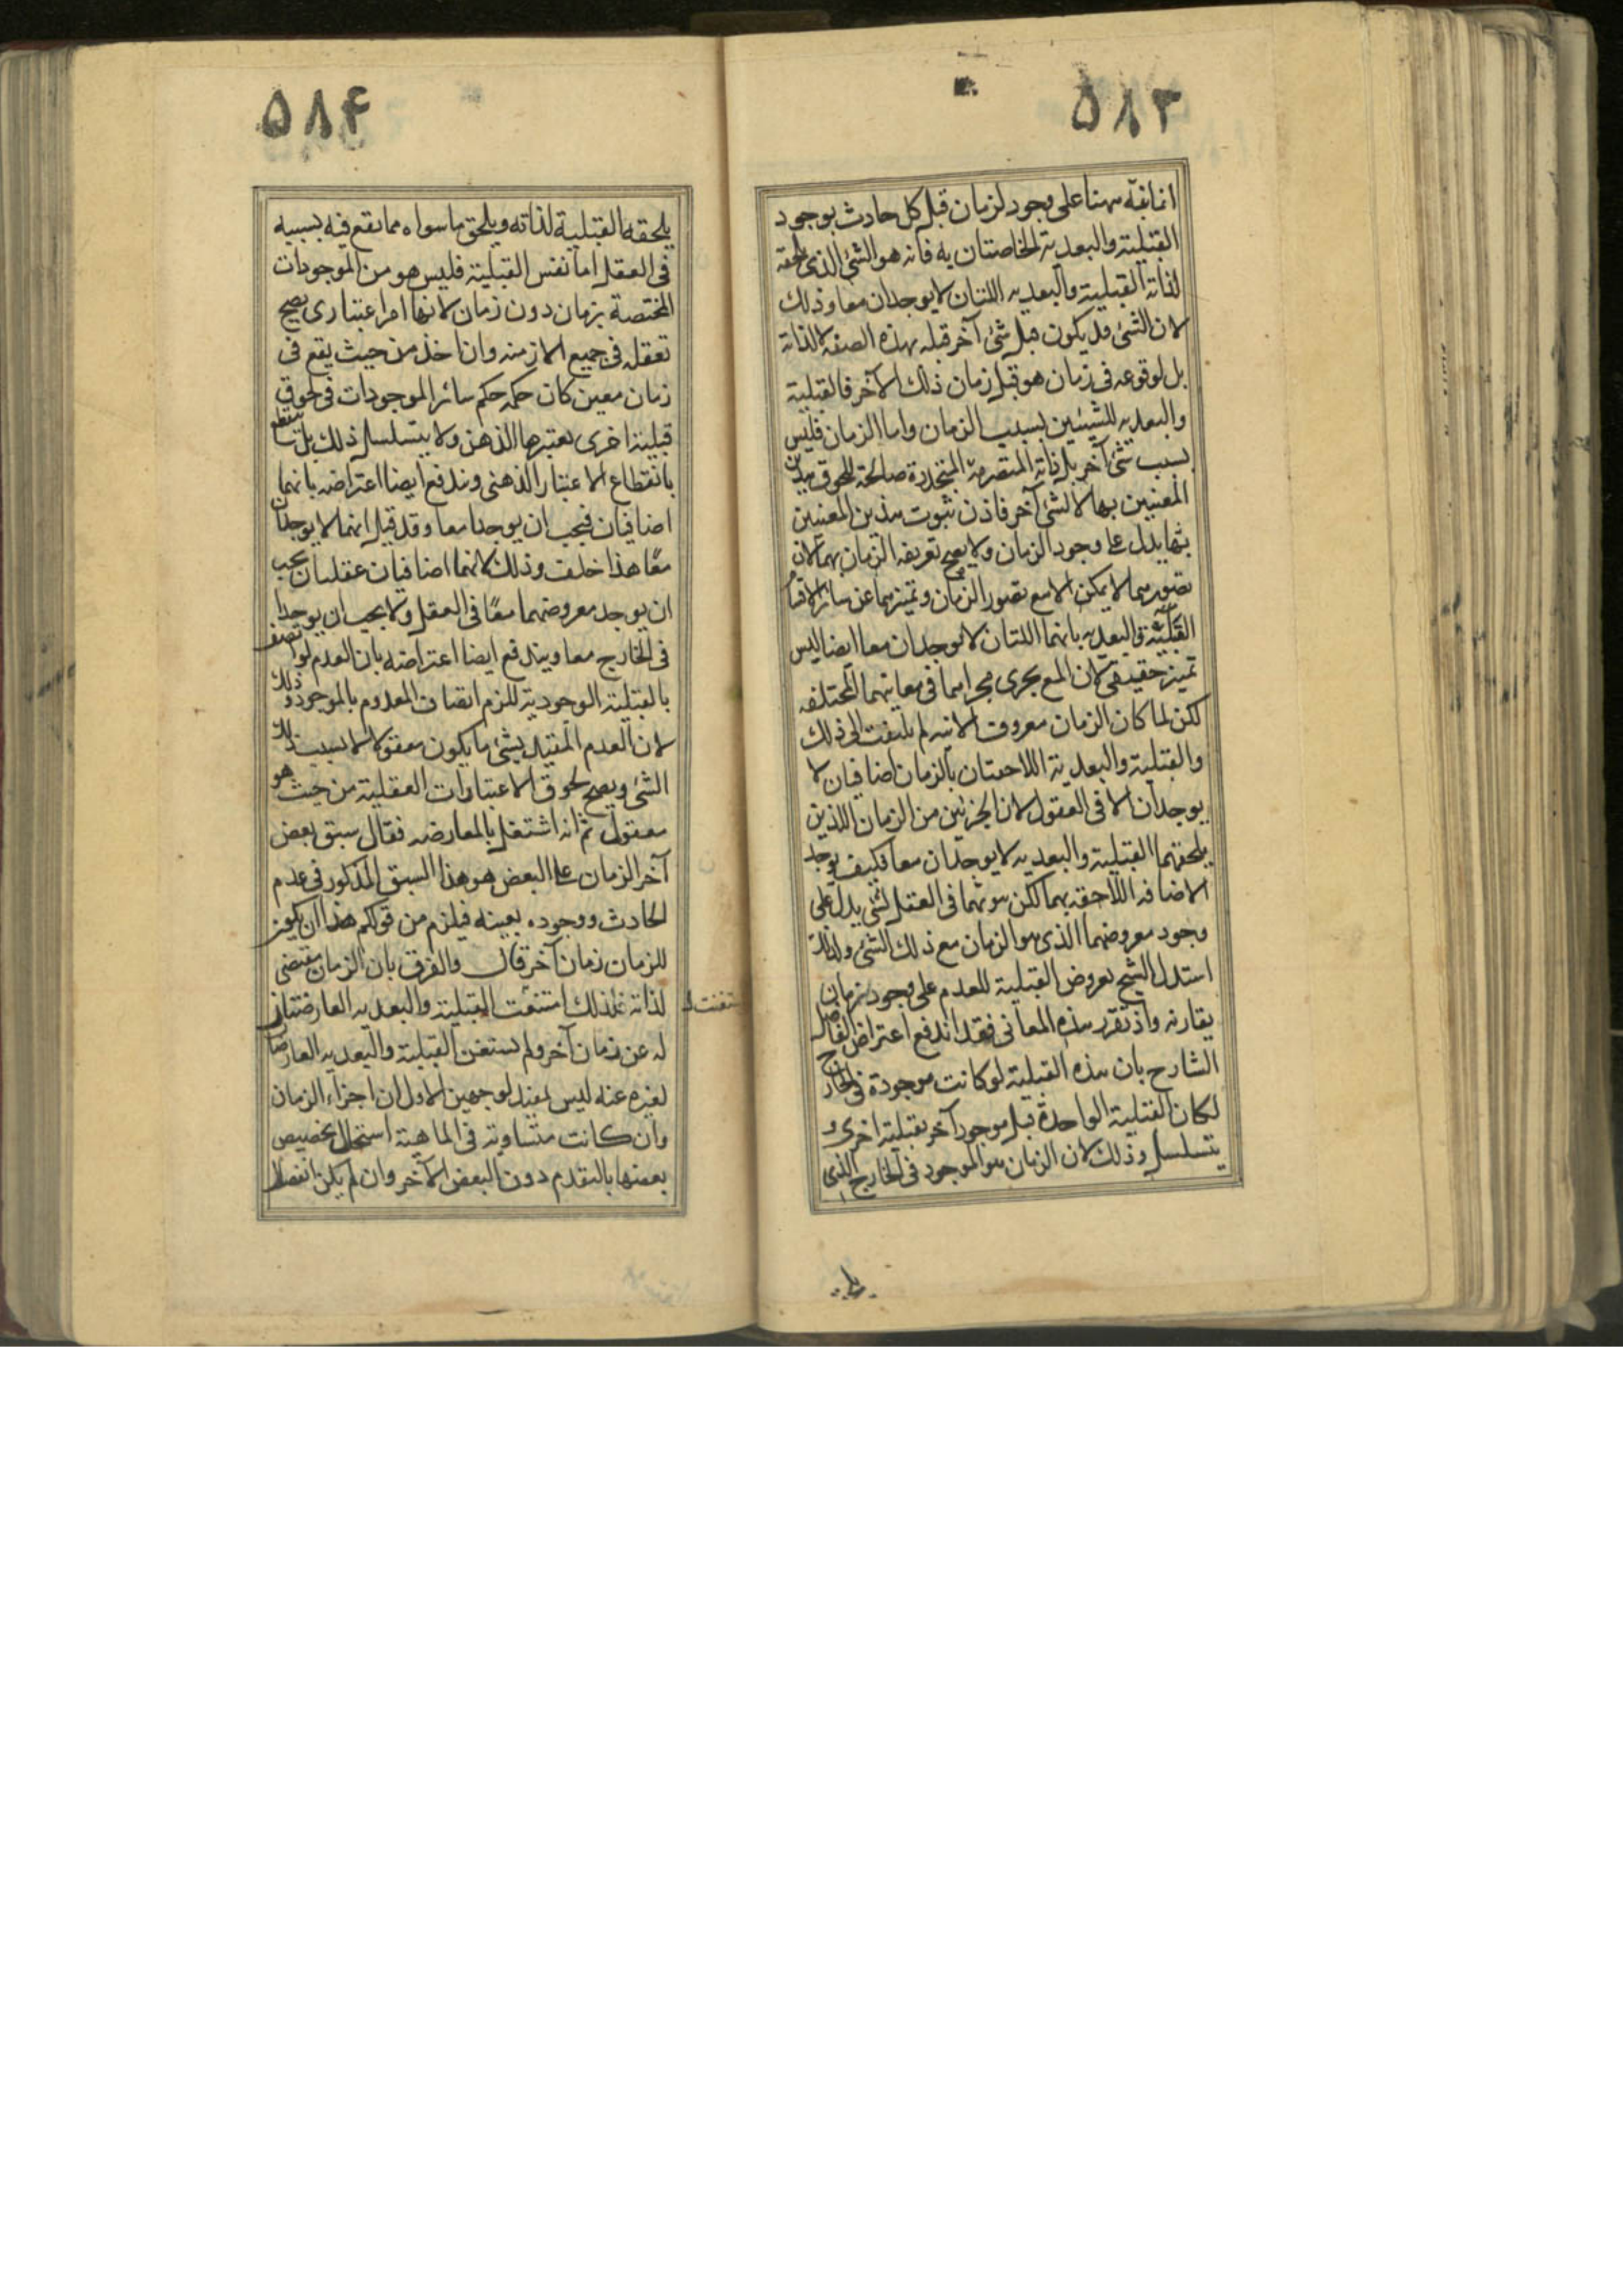 ٥٨٣
انما نبّه ههنا على وجود الزمان قبل كل حادث بوجود
القبلية والبعدية الخاصتان به فانه هو الشئ الذى يلحقه
لذاته القبلية والبعديه اللتان لا يوجدان معا وذلك
لان الشئ قد يكون قبل شئ آخر قبله بهذه الصفه لا لذاته
بل لوقوعه فى زمان هو قبل زمان ذلك الآخر فالقبلية
والبعديه للشيئين بسبب الزمان واما الزمان فليس
بسبب شئ آخر بل ذاته المتصرمة المتجددة صالحة للحوق هذين
المعنيين بها لا لشئ آخر فاذن ثبوت هذين المعنيين
يدل على وجود الزمان ولا يصح تعريف الزمان بهما لان
تصورهما لا يمكن الا مع تصور الزمان وتميزهما عن سائر الاقسام
القبلية والبعديه بانهما اللتان لا يوجدان معا ايضا ليس
تميز حقيقى لان المع يجرى مجراهما فى معانيهما المختلفه
لكن لما كان الزمان معروف الانيه لم يلتفت الى ذلك
والقبلية والبعدية اللاحقتان بالزمان اضافيان لا
يوجدان الا فى العقول لان الجزئين من الزمان اللذين
يلحقهما القبلية والبعديه لا يوجدان معا فكيف يوجد
الاضافه اللاحقه بهما لكن ثبوتهما فى العقل لشئ يدل على
وجود معروضهما الذى هو الزمان مع ذلك الشئ ولذلك
استدل الشيخ بعروض القبلية للعدم على وجود زمان
يقارنه واذ تقرر هذه المعانى فقد اندفع اعتراض الفاضل
الشارح بان هذه القبلية لو كانت موجودة فى الخارج
لكان القبلية الواحدة قبل موجود آخر بقبلية اخرى و
يتسلسل وذلك لان الزمان هو الموجود فى الخارج الذى
٥٨۴
يلحقه القبلية لذاته ويلحق ما سواه مما يقع فيه بسببه
فى العقل اما نفس القبلية فليس هو من الموجودات
المختصة بزمان دون زمان لانها امر اعتبارى يصح
تعقله فى جميع الازمنه وان اخذ من حيث يقع فى
زمان معين كان حكمه حكم سائر الموجودات فى لحوق
قبلية اخرى يعتبرها الذهن ولا يتسلسل ذلك بل ينقطع
بانقطاع الاعتبار الذهنى ويندفع ايضا اعتراضه بانهما
اضافيان فيجب ان يوجدا معا وقد قيل انهما لا يوجدان
معًا هذا خلف وذلك لانهما اضافيان عقليان يجب
ان يوجد معروضهما معًا فى العقل ولا يجب ان يوجدا
فى الخارج معا ويندفع ايضا اعتراضه بان العدم لو اتصف
بالقبلية الوجودية للزم اتصاف المعدوم بالموجود وذلك
لان العدم المقيد بشئ ما يكون معقولا بسبب ذلك
الشئ ويصح لحوق الاعتبارات العقلية من حيث هو
معقول ثم انه اشتغل بالمعارضه فقال سبق بعض
آخر الزمان على البعض هو هذا السبق المذكور فى عدم
الحادث ووجوده بعينه فيلزم من قولكم هذا ان يكون
للزمان زمان آخر قال والفرق بان الزمان مقتضى
لذاته فلذلك استغنت القبلية والبعديه العارضتان
له عن زمان آخر ولم يستغن القبلية والبعديه العارضتان
لغيره عنه ليس بمفيد لوجهين الاول ان اجزاء الزمان
وان كانت متساوية فى الماهية استحال تخصيص
بعضها بالتقدم دون البعض الآخر وان لم يكن انفصال